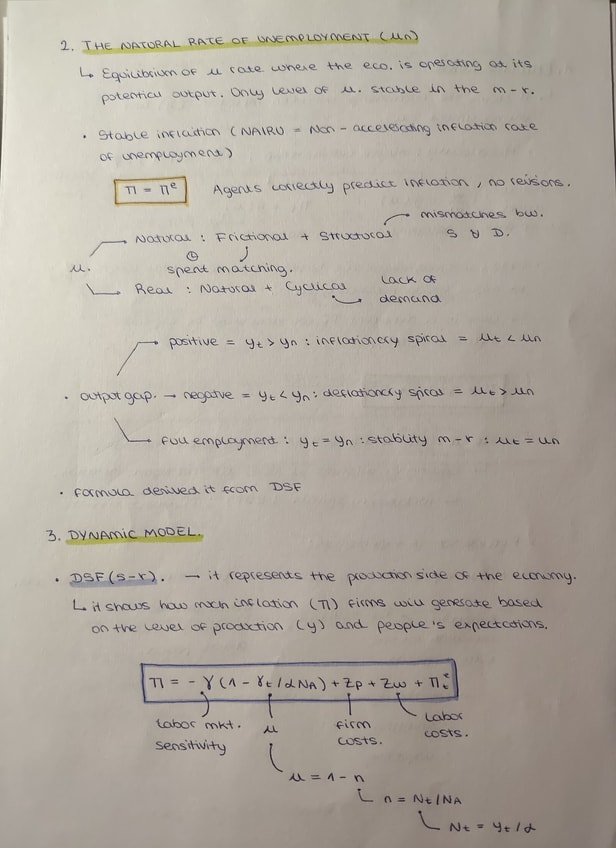 2. THE NATURAL RATE OF UNEMPLOYMENT (μn)
↳ Equilibrium of μ rate where the eco. is operating at its
potential output. Only level of μ. stable in the m-r.
• Stable inflation (NAIRU = Non-accelerating inflation rate
of unemployment)
π = πᵉ Agents correctly predict inflation, no revisions.
mismatches bw.
S y D.
Natural: Frictional + Structural
μ.
spent matching.
Real: Natural + Cyclical
Lack of
demand
positive = yt > yn : inflationary spiral = μt < μn
• output gap. → negative = yt < yn : deflationary spiral = μt > μn
full employment: yt = yn : stability m-r : μt = μn
• formula derived it from DSF
3. DYNAMIC MODEL.
• DSF (s-r). → it represents the production side of the economy.
↳ it shows how much inflation (π) firms will generate based
on the level of production (y) and people's expectations.
π = -γ (1 - yt/αNA) + Zp + Zw + πtᵉ
labor mkt.
sensitivity
μ
firm
costs.
Labor
costs.
μ = 1 - n
n = Nt/NA
Nt = yt/α